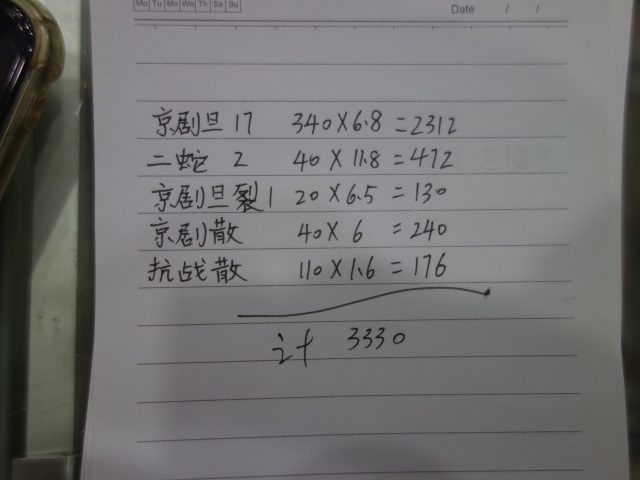 Mo Tu Mo We Th Sa Su
Date / /
京剧旦 17 340×6.8=2312
二蛇 2 40×11.8=472
京剧旦裂1 20×6.5=130
京剧散 40×6 =240
抗战散 110×1.6=176
计 3330